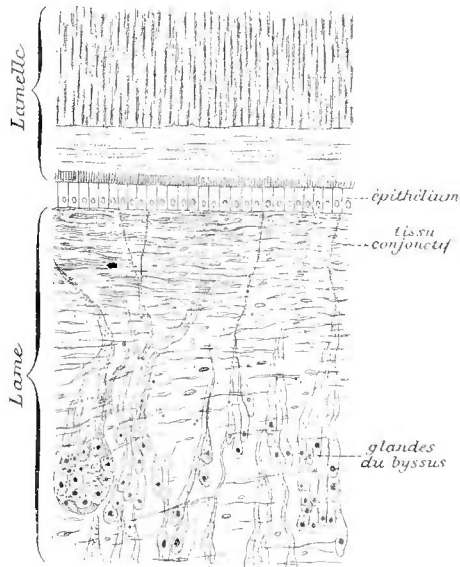 Lamelle
épithélium
tissu
conjonctif
Lame
glandes
du byssus